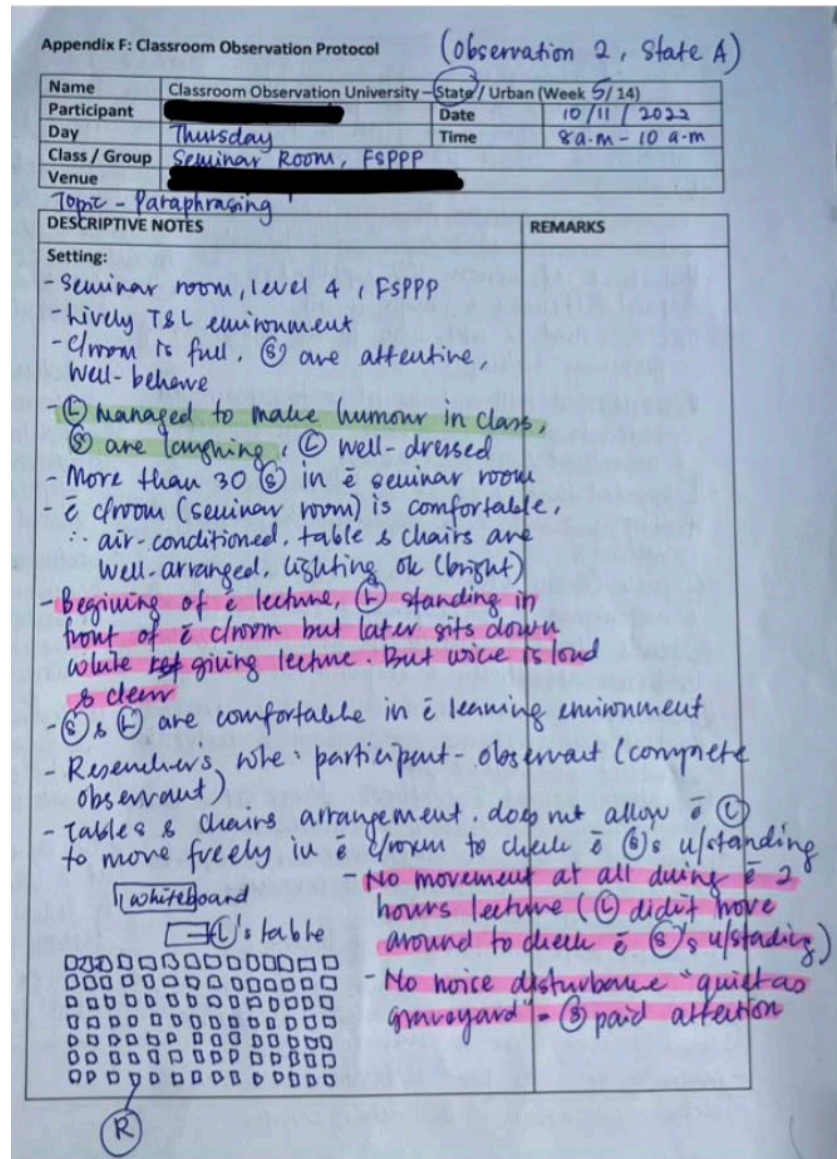 Appendix F: Classroom Observation Protocol
(Observation 2, State A)
Name Classroom Observation University – State / Urban (Week 5/ 14)
Participant Date 10/11/2022
Day Thursday Time 8 a.m – 10 a.m
Class / Group Seminar Room, FSPPP
Venue
Topic - Paraphrasing
DESCRIPTIVE NOTES REMARKS
Setting:
- Seminar room, level 4, FSPPP
- Lively T&L environment
- C/room is full. Ⓢ are attentive.
Well-behave
- Ⓛ managed to make humour in class,
Ⓢ are laughing, Ⓛ well-dressed
- More than 30 Ⓢ in ē seminar room
- ē c/room (seminar room) is comfortable,
∴ air-conditioned, table & chairs are
well-arranged, lighting ok (bright)
- Begining of ē lecture, Ⓛ standing in
front of ē c/room but later sits down
while giving lecture. But voice is loud
& clear
- Ⓢ & Ⓛ are comfortable in ē learning environment
- Researchers role: participant-observant (complete
observant)
- Tables & chairs arrangement. does not allow ē Ⓛ
to move freely in ē c/room to check ē Ⓢ's u/standing
- No movement at all during ē 2
hours lecture (Ⓛ didn't move
around to check ē Ⓢ's u/stading)
- No noice disturbance "quiet as
graveyard" = Ⓢ paid attention
whiteboard
Ⓛ's table
Ⓡ